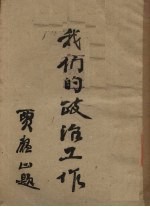 我们的政治工作
贾启允题